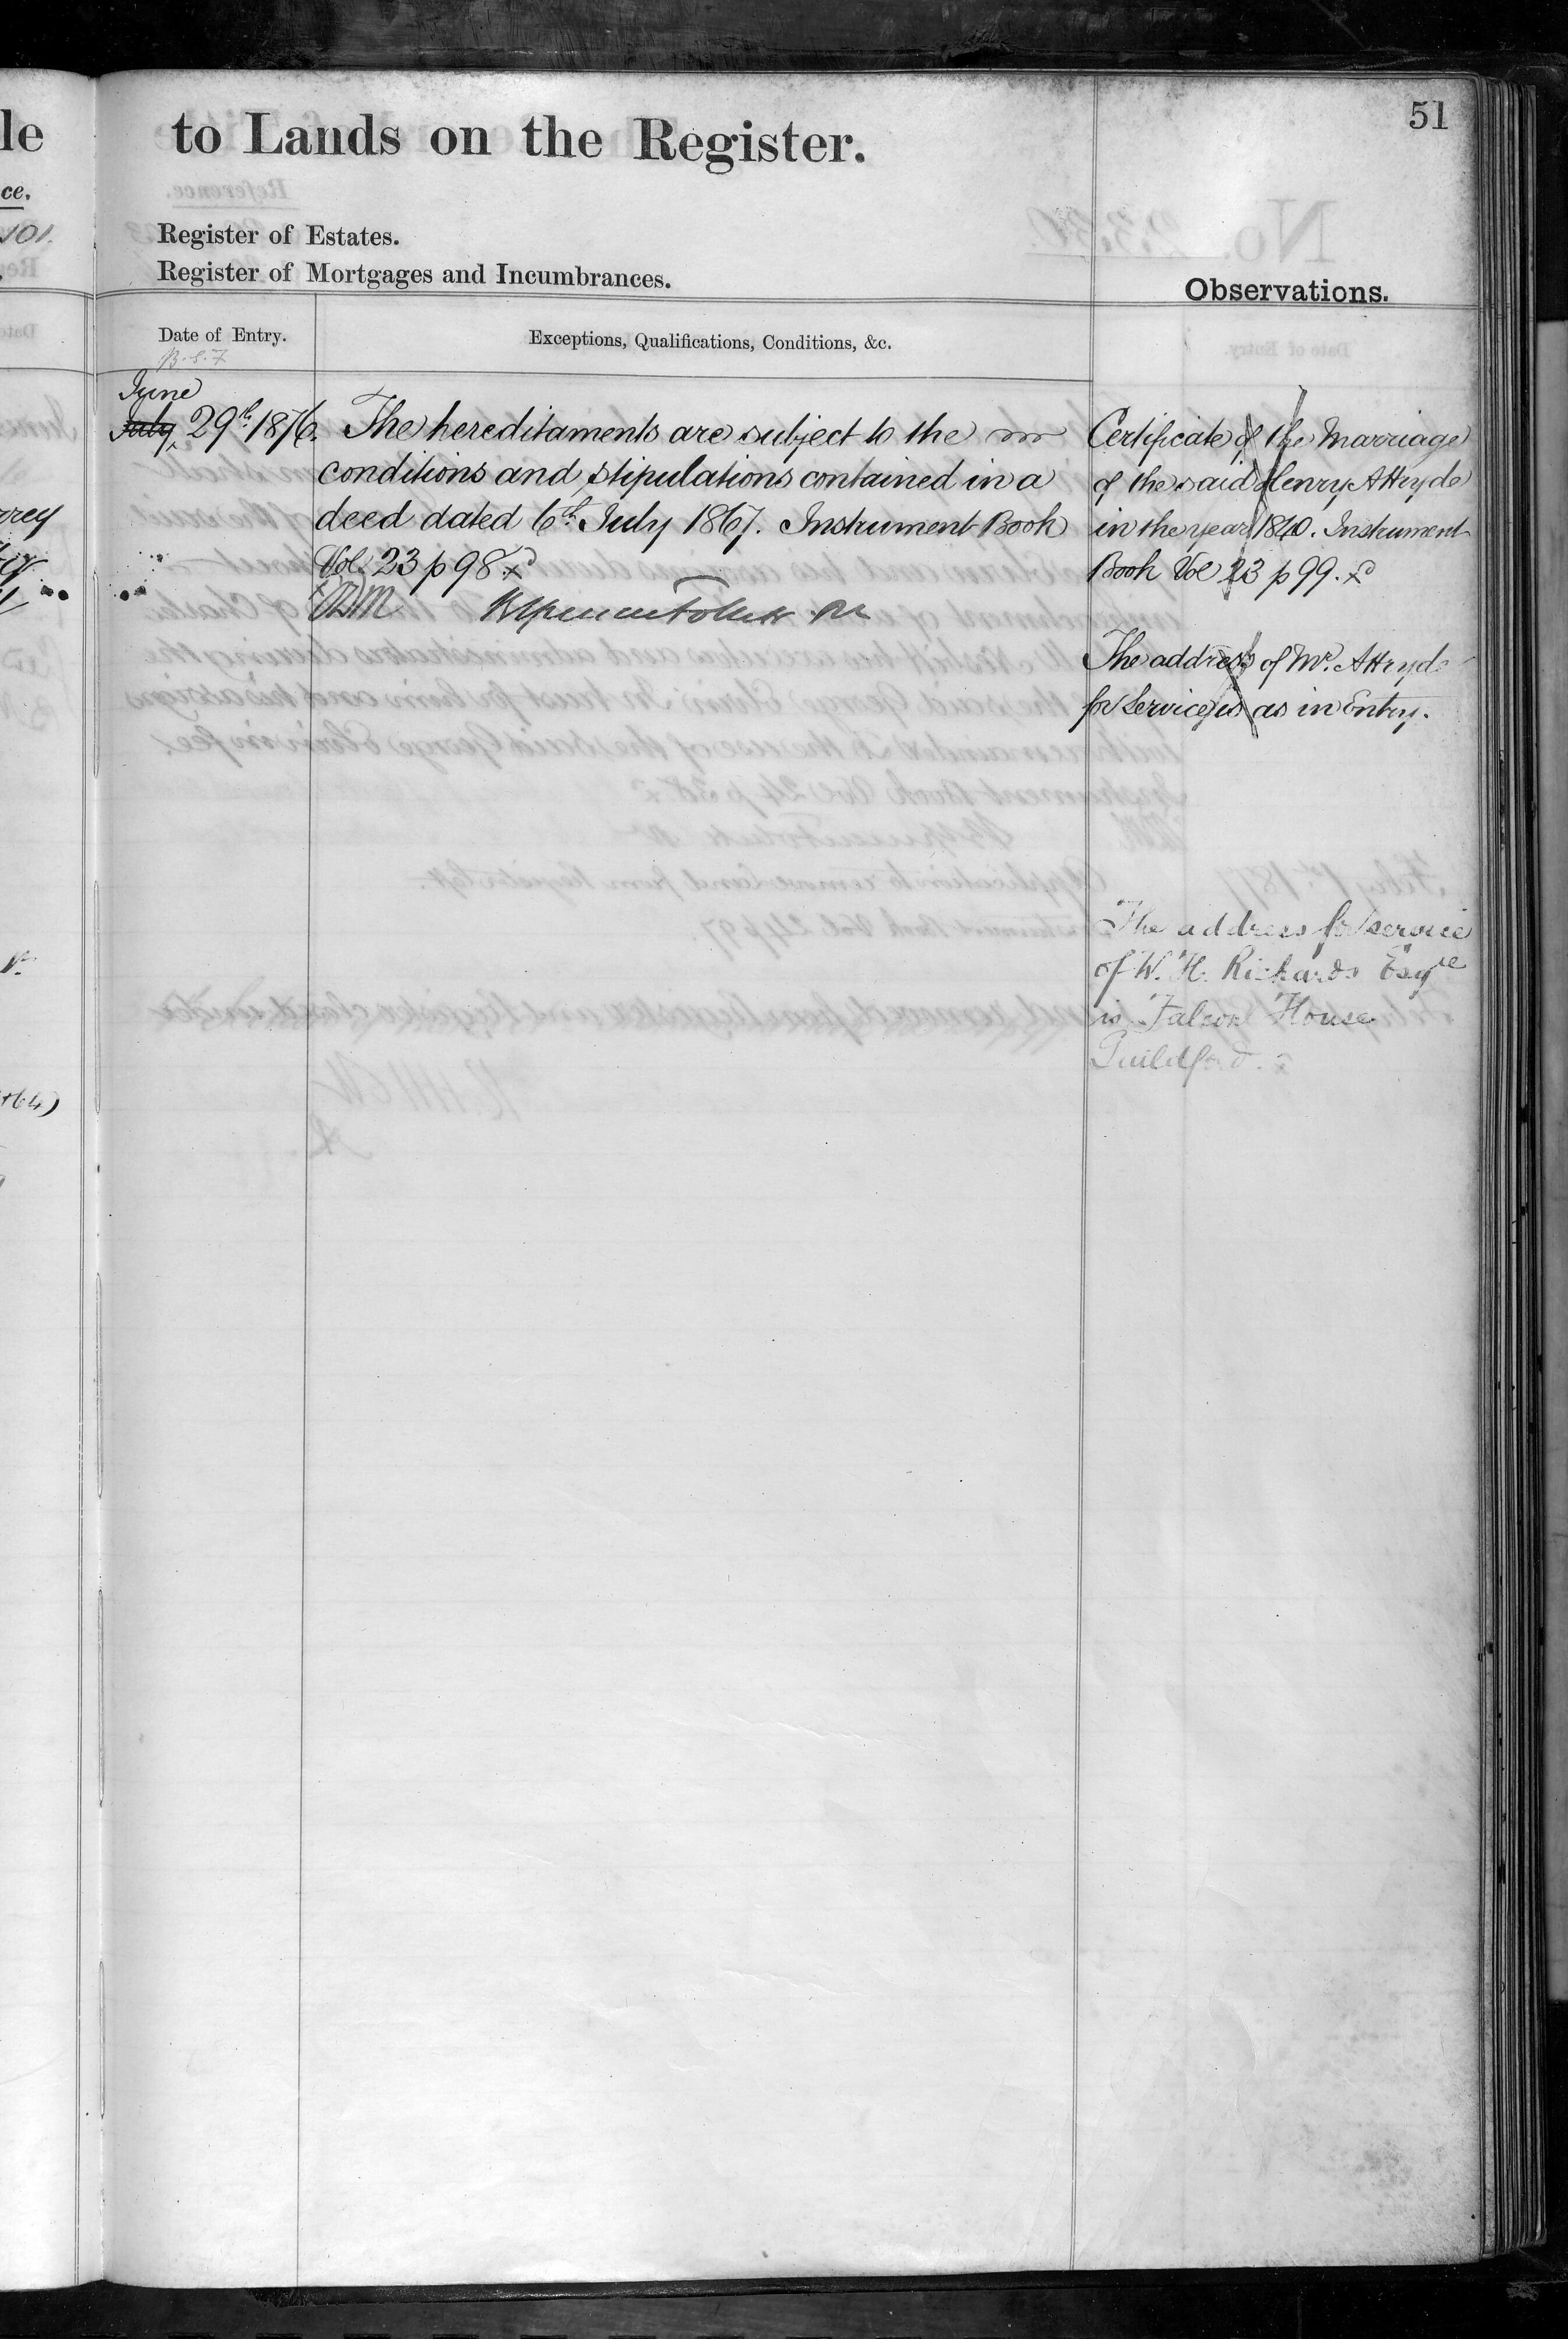 51
le
to Lands on the Register.
ce.
101.
Register of Estates.
Register of Mortgages and Incumbrances.
Observations.
Date of Entry.
Exceptions, Qualifications, Conditions, &c.
June
July 29th 1876.
The hereditaments are subject to the
conditions and stipulations contained in a
deed dated 6th July 1867. Instrument Book
Vol. 23 p 98.
Certificate of the Marriage
of the said Henry Attryde
in the year 1840. Instrument
Book Vol 23 p 99.
The address of Mr. Attryde
for Service is as in Entry.
The address for service
of W. H. Richards Esqre
is Falcon House
Guildford.